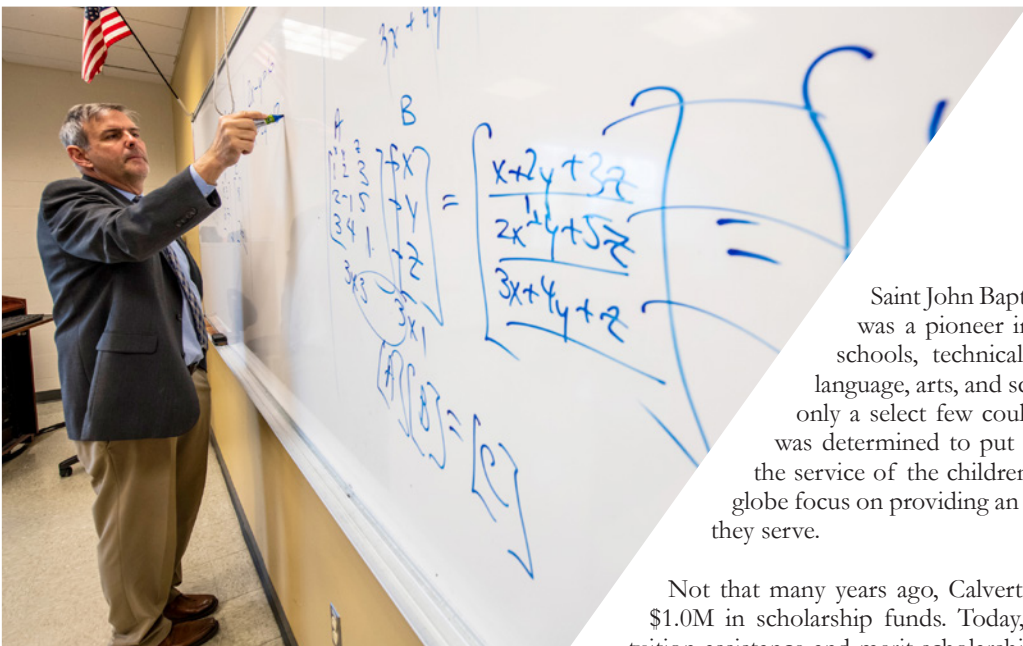 3x + 4y
A B
x y z
1 2 3 x x+2y+3z
2 -1 5 y = 2x - 1y + 5z =
3 4 1 z 3x+4y+z
3x3 3x1
[A] [B] = [C]
Saint John Bapt
was a pioneer in
schools, technical
language, arts, and sc
only a select few coul
was determined to put
the service of the children
globe focus on providing an
they serve.
Not that many years ago, Calvert
$1.0M in scholarship funds. Today,
tuition assistance and merit scholarshi